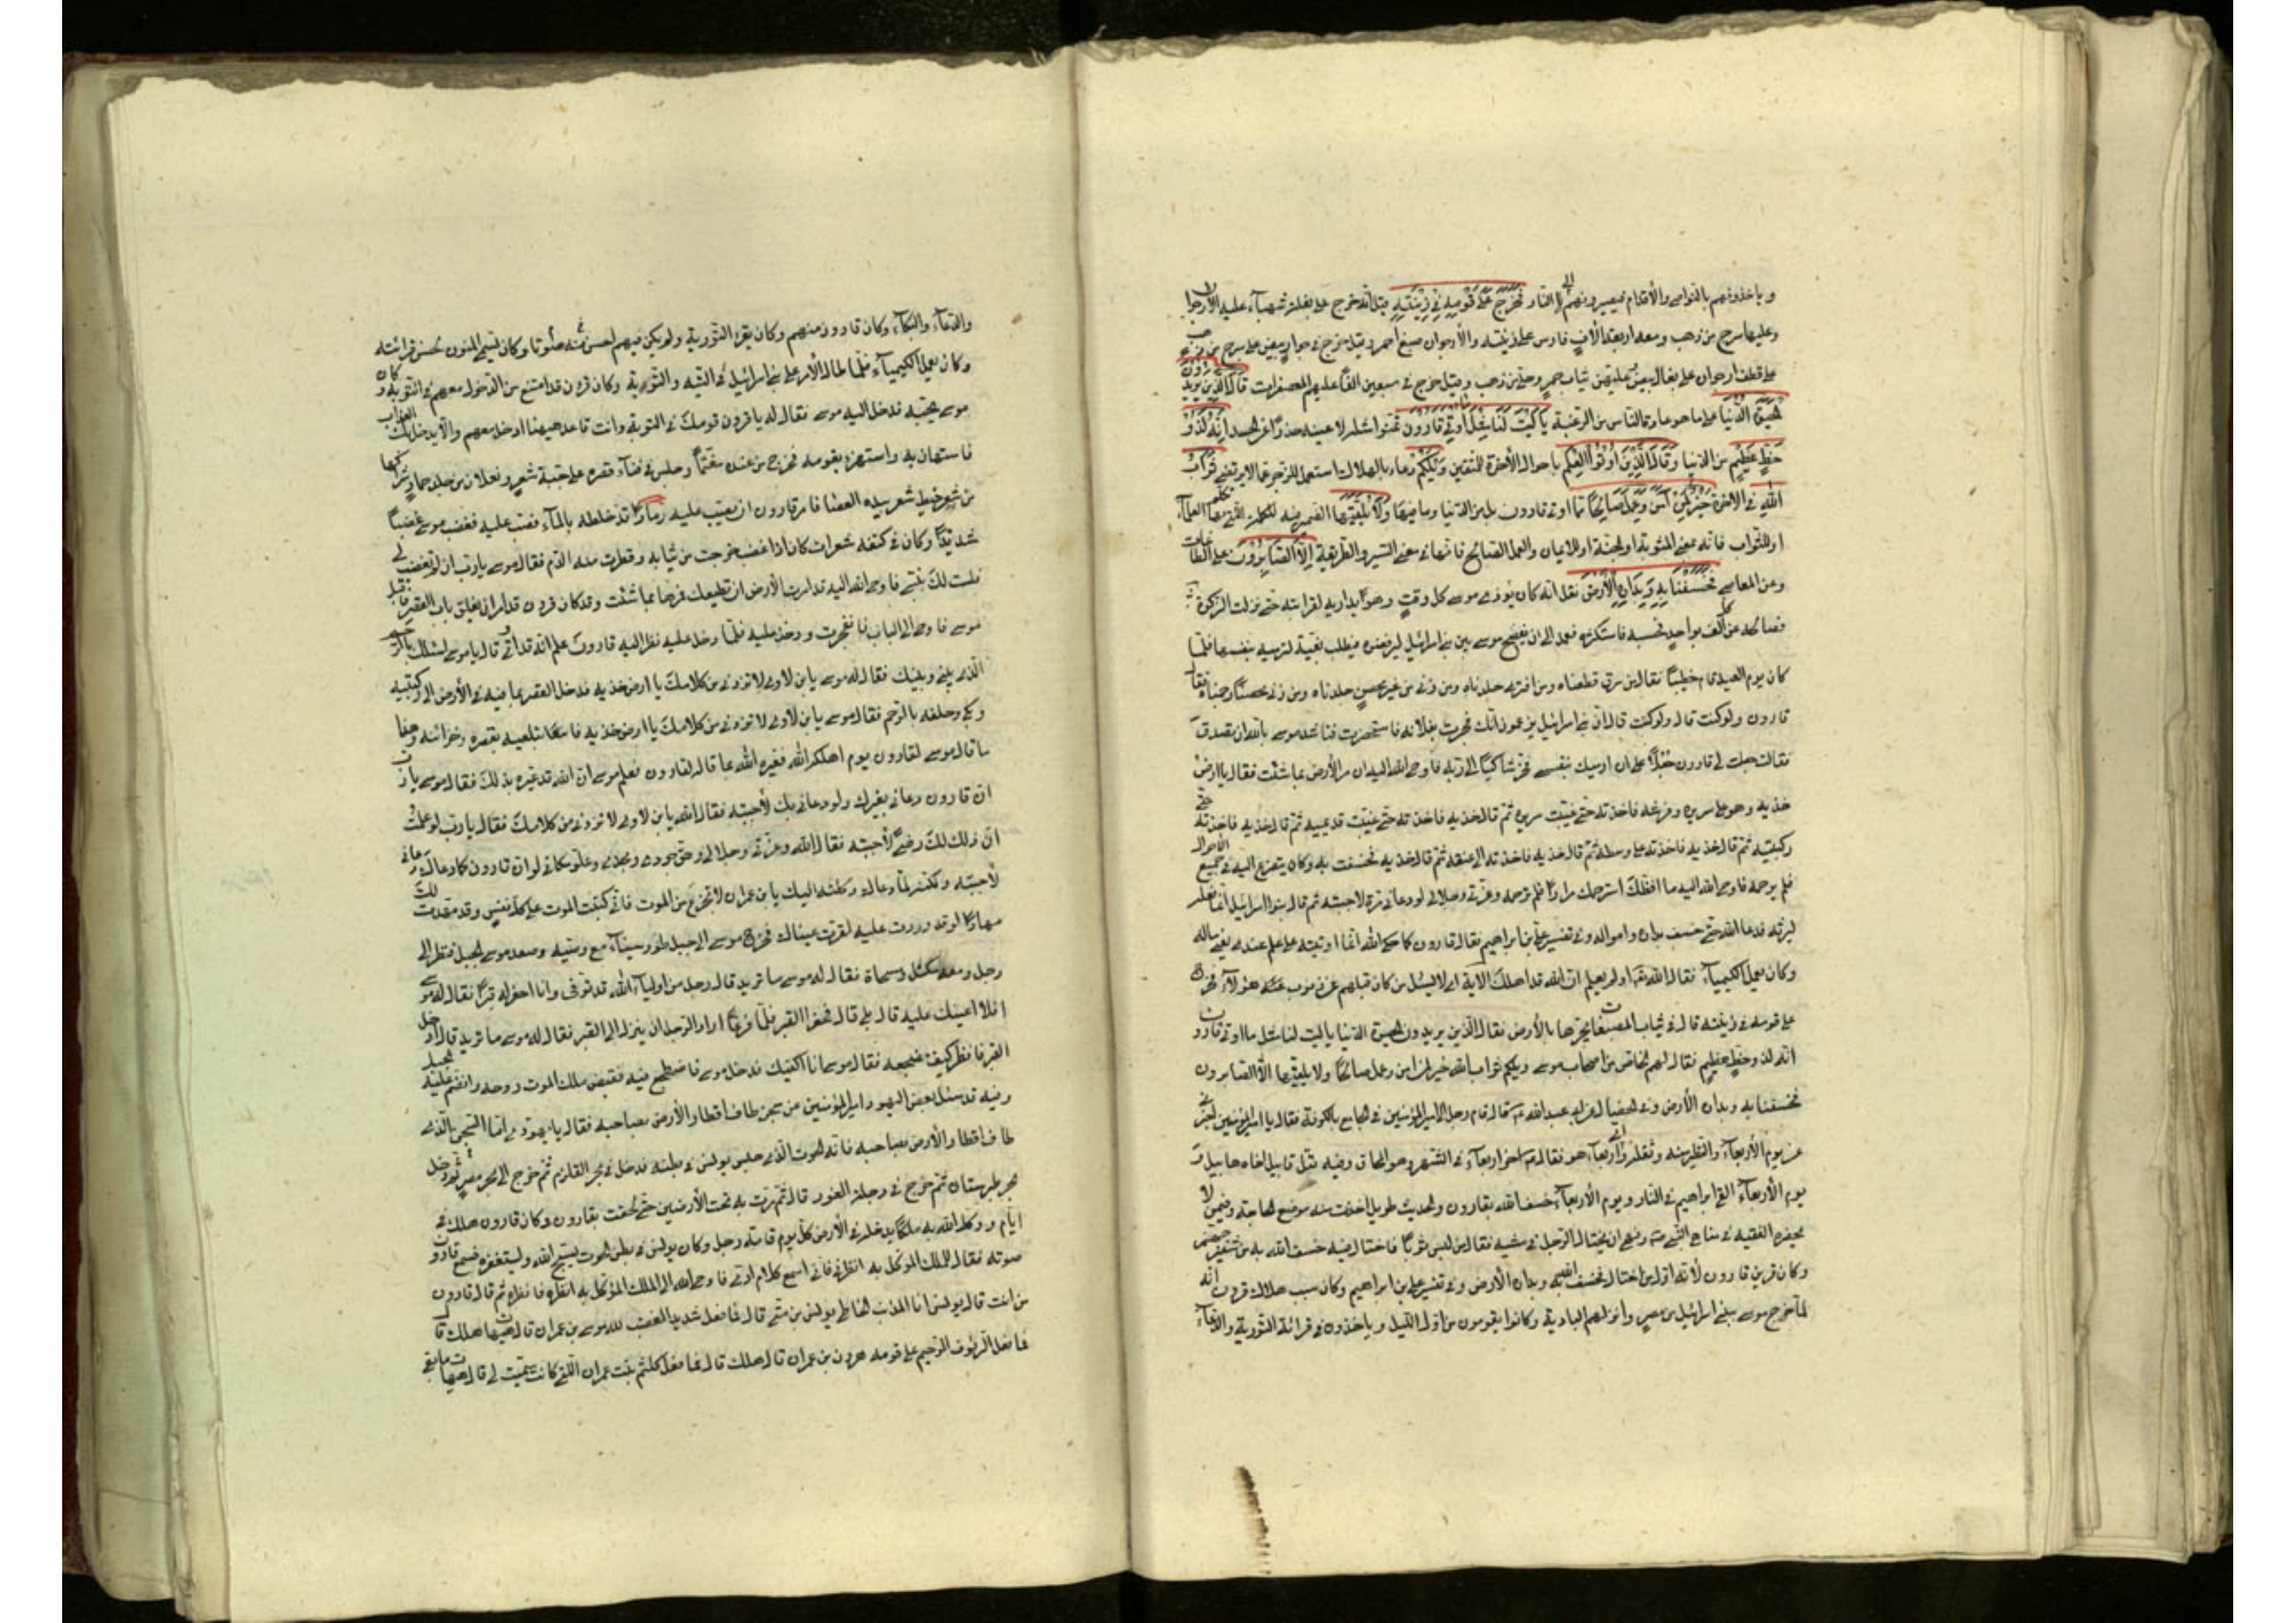 وياخذونهم بالنواصي والأقدام فيصيرونهم الى النار فخرج على قومه في زينته قيل انه خرج على بغلة شهباء عليه الأرجوان
وعليها سرج من ذهب ومعه اربعة الاف فارس على زينته والأرجوان صبغ احمر وقيل خرج في جوار بيض على سرج من ذهب
على قطف ارجوان على بغال بيض عليهن ثياب حمر وحلي من ذهب وقيل خرج في سبعين الفا عليهم المعصفرات قال الذين يريدون
الحيوة الدنيا على ما هو عادة الناس من الرغبة يا ليت لنا مثل ما اوتي قارون تمنوا مثله لا عينه حذرا عن الحسد انه لذو
حظ عظيم من الدنيا وقال الذين اوتوا العلم باحوال الأخرة للمتقين ويلكم دعاء بالهلاك استعمل للزجر عما لا يرتضى ثواب
الله في الاخرة خير لمن آمن وعمل صالحا مما اوتي قارون بل من الدنيا وما فيها ولا يلقيها الضمير فيه للكلمة التي تكلم بها العلماء
او للثواب فانه بمعنى المثوبة او الجنة او للايمان والعمل الصالح فانهما في معنى السيرة والطريقة الا الصابرون على الطاعات
وعن المعاصي فخسفنا به وبداره الأرض نقل انه كان يؤذي موسى كل وقت وهو يداريه لقرابته حتى نزلت الزكوة
فصالحه عن كل الف بواحد فحسبه فاستكثره فعمد الى ان يفضح موسى بين بني اسرائيل ليرفضوه فبرطل بغية لترميه بنفسها فلما
كان يوم العيد قام خطيبا فقال من سرق قطعناه ومن افترى جلدناه ومن زنى من غير محصن جلدناه ومن زنى محصنا رجمناه فقال
قارون ولو كنت قال ولو كنت قال ان بني اسرائيل يزعمون انك فجرت بفلانة فاستحضرت فناشدها موسى بالله ان تصدق
فقالت جعل لي قارون جعلا على ان ارميك بنفسي فخر شاكيا الى ربه فاوحى الله اليه ان مر الأرض بما شئت فقال يا ارض
خذيه وهو على سريره وفرشه فاخذته حتى غيبت سريره ثم قال خذيه فاخذته حتى غيبت قدميه ثم قال خذيه فاخذته حتى
ركبتيه ثم قال خذيه فاخذته على وسطه ثم قال خذيه فاخذته الى عنقه ثم قال خذيه فخسفت به وكان يتضرع اليه في جميع الأحوال
فلم يرحمه فاوحى الله اليه ما افظك استرحمك مرارا فلم ترحمه وعزتي وجلالي لو دعاني مرة لاجبته ثم قال بنو اسرائيل انما فعله
ليرثه فدعا الله حتى خسف بداره وامواله وفي تفسير علي بن ابراهيم فقال قارون كما حكى الله انما اوتيته على علم عندي يعني ماله
وكان يعمل الكيمياء فقال الله تعالى اولم يعلم ان الله قد اهلك الاية اي لا يسئل من كان قبلهم عن ذنوب هؤلاء فخرج
على قومه في زينته قال في ثياب المصبغات يجرها بالأرض فقال الذين يريدون الحيوة الدنيا يا ليت لنا مثل ما اوتي قارون
انه لذو حظ عظيم فقال لهم الخاص من اصحاب موسى ويلكم ثواب الله خير لمن امن وعمل صالحا ولا يلقيها الا الصابرون
فخسفنا به وبداره الأرض وفي الخصال عن ابي عبد الله قال قام رجل الى امير المؤمنين في الجامع بالكوفة فقال يا امير المؤمنين اخبرني
عن يوم الأربعاء والتطير منه وثقله واي اربعاء هو فقال اخر اربعاء في الشهر وهو المحاق وفيه قتل قابيل اخاه هابيل و
يوم الأربعاء القي ابراهيم في النار ويوم الأربعاء خسف الله بقارون والحديث طويل اخذت منه موضع الحاجة وفيمن لا
يحضره الفقيه في مناهي النبي ونهى ان يختال الرجل في مشيه فقال من لبس ثوبا فاختال فيه خسف الله به من شفير جهنم
وكان قرين قارون لأنه اول من اختال فخسف الله به وبداره الأرض وفي تفسير علي بن ابراهيم وكان سبب هلاك قرون انه
لما اخرج موسى بني اسرائيل من مصر وانزلهم البادية وكانوا يقومون من اول الليل وياخذون في قرائة التورية والدعاء
والدعاء والبكاء وكان قارون منهم وكان يقرء التورية ولم يكن فيهم احسن منه صوتا وكان يسمى المنون لحسن قرائته
وكان يعمل الكيمياء فلما طال الأمر على بني اسرائيل في التيه والتورية وكان قرون قد امتنع من الدخول معهم في التوبة وكان
موسى يحبه فدخل اليه موسى فقال له يا قرون قومك في التوبة وانت قاعد هيهنا ادخل معهم والا ينزل بك العذاب
فاستهان به واستهزء بقومه فخرج من عنده مغتما وجلس في فناء قصره على جبة شعر ونعلان من جلد حمار شراكها
من شعر خيط شعر بيده العصا فامر قارون ان يصب عليه رماد قد خلطه بالماء فصب عليه فغضب موسى غضبا
شديدا وكان في كتفه شعرات كان اذا غضب خرجت من ثيابه وقطرت منه الدم فقال موسى يا رب ان لم تغضب لي
فلست لك بنبي فاوحى الله اليه قد امرت الأرض ان تطيعك فمرها بما شئت وقد كان قرون قد امر ان يغلق باب القصر فاقبل
موسى فاوحى الى الباب فانفجرت ودخل عليه فلما دخل عليه نظر اليه قارون علم انه قد اتي قال يا موسى اسئلك بالرحم
الذي بيني وبينك فقال له موسى يا بن لاوى لا تزدني من كلامك يا ارض خذيه فدخل القصر بما فيه في الأرض الى ركبتيه
وبكى وحلفه بالرحم فقال موسى يا بن لاوى لا تزدني من كلامك يا ارض خذيه فابتلعيه بقصره وخزائنه وهذا
ما قال موسى لقارون يوم اهلكه الله فغيره الله بما قاله لقارون فعلم موسى ان الله قد غيره بذلك فقال موسى يا رب
ان قارون دعاني بغيرك ولو دعاني بك لأجبته فقال الله يا بن لاوى لا تزدني من كلامك فقال يا رب لو علمت
ان ذلك لك رضى لأجبته فقال الله وعزتي وجلالي وحق جودي ومجدي وعلو مكاني لو ان قارون كما دعاك دعاني
لأجبته ولكنه لما دعاك وكلته اليك يا بن عمران لا تجزع من الموت فاني كتبت الموت على كل نفس وقد مهدت لك
مهادا لو قد وردت عليه لقرت عيناك فخرج موسى الى جبل طور سيناء مع وصيه وصعد موسى الجبل فنظر الى
رجل ومعه مكتل ومسحاة فقال له موسى ما تريد قال رجل من اولياء الله قد توفى وانا احفر له قبرا فقال له موسى
افلا اعينك عليه قال بلى قال فحفرا القبر فلما فرغا اراد الرجل ان ينزل الى القبر فقال له موسى ما تريد قال ادخل
القبر فانظر كيف مضجعه فقال موسى انا اكفيك فدخل موسى فاضطجع فيه فقبض ملك الموت روحه وانضم عليه الجبل
وفيه قد سئل بعض اليهود امير المؤمنين عن سجن طاف اقطار الأرض بصاحبه فقال يا يهودي اما السجن الذي
طاف اقطار الأرض بصاحبه فانه الحوت الذي حبس يونس في بطنه فدخل في بحر القلزم ثم خرج الى بحر مصر ثم دخل
بحر طبرستان ثم خرج في دجلة الغور قال ثم مرت به تحت الأرضين حتى لحقت بقارون وكان قارون هلك في
ايام موسى ووكل الله به ملكا يدخله في الأرض كل يوم قامة رجل وكان يونس في بطن الحوت يسبح الله ويستغفره فسمع قارون
صوته فقال للملك الموكل به انظرني فاني اسمع كلام ادمي فاوحى الله الى الملك الموكل به انظره فانظره ثم قال قارون
من انت قال يونس انا المذنب الخاطي يونس بن متى قال فما فعل شديد الغضب لله موسى بن عمران قال هيهات هلك قال
فما فعل الرؤف الرحيم على قومه هرون بن عمران قال هلك قال فما فعل كلثم بنت عمران التي كانت سميت لي قال هيهات ما بقي